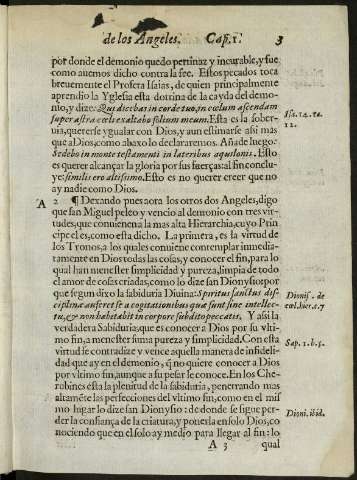 de los Angeles. Cap. 1. 3
por donde el demonio quedo pertinaz y incurable, y fue
como auemos dicho contra la fee. Estos pecados toca
breuemente el Profeta Isaias, de quien principalmente
aprendio la Yglesia esta dotrina de la cayda del demo-
nio, y dize: Qui dicebas in corde tuo, in cælum ascendam
super astra cæli exaltabo solium meum. Esta es la sober-
uia, quererse ygualar con Dios, y aun estimarse assi mas
que al Dios, como abaxo lo declararemos. Añade luego:
Sedebo in monte testamenti in lateribus aquilonis. Esto
es querer alcançar la gloria por sus fuerças: al fin conclu-
ye: similis ero altissimo. Esto es no querer creer que no
ay nadie como Dios.
Isa. 14. 12.
A 2 ¶ Dexando pues aora los otros dos Angeles, digo
que san Miguel peleo y vencio al demonio con tres vir-
tudes, que conuienen a la mas alta Hierarchia, cuyo Prin
cipe el es, como esta dicho. La primera, es la virtud de
los Tronos, a los quales conuiene contemplar inmedia-
tamente en Dios todas las cosas, y conocer el fin, para lo
qual han menester simplicidad y pureza, limpia de todo
el amor de cosas criadas, como lo dize san Dionysio: por
que segun dixo la sabiduria Diuina: Spiritus sanctus dis-
ciplinæ auferet se a cogitationibus quæ sunt sine intellec-
tu, & non habitabit in corpore subdito peccatis. Y assi la
Dionis. de
cæl. hier. c. 7
verdadera Sabiduria, que es conocer a Dios por su vlti-
mo fin, a menester suma pureza y simplicidad. Con esta
Sap. 1. b. 5.
virtud se contradize y vence aquella manera de infideli-
dad que ay en el demonio, q̃ no quiere conocer a Dios
por vltimo fin, aunque a su pesar le conoce. En los Che-
rubines esta la plenitud de la sabiduria, penetrando mas
altamẽte las perfecciones del vltimo fin, como en el mis
mo lugar lo dize san Dionysio: de donde se sigue per-
Dioni. ibid.
der la confiança de la criatura, y ponerla en solo Dios, co
nociendo que en el solo ay medio para llegar al fin: lo
A 3 qual